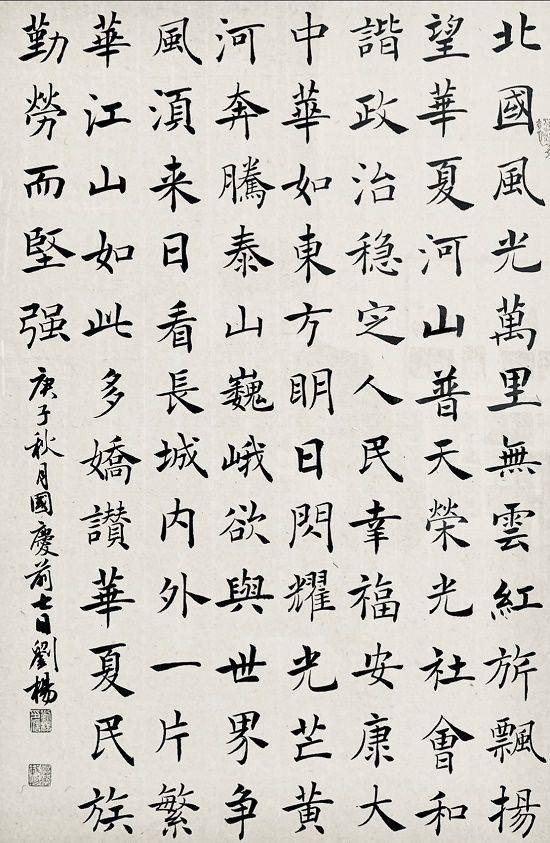 北國風光萬里無雲紅旂飄揚
望華夏河山普天榮光社會和
諧政治穩定人民幸福安康大
中華如東方明日閃耀光芒黃
河奔騰泰山巍峨欲與世界争
風湏来日看長城内外一片繁
華江山如此多嬌讃華夏民族
勤勞而堅强
庚子秋月國慶前七日劉楊